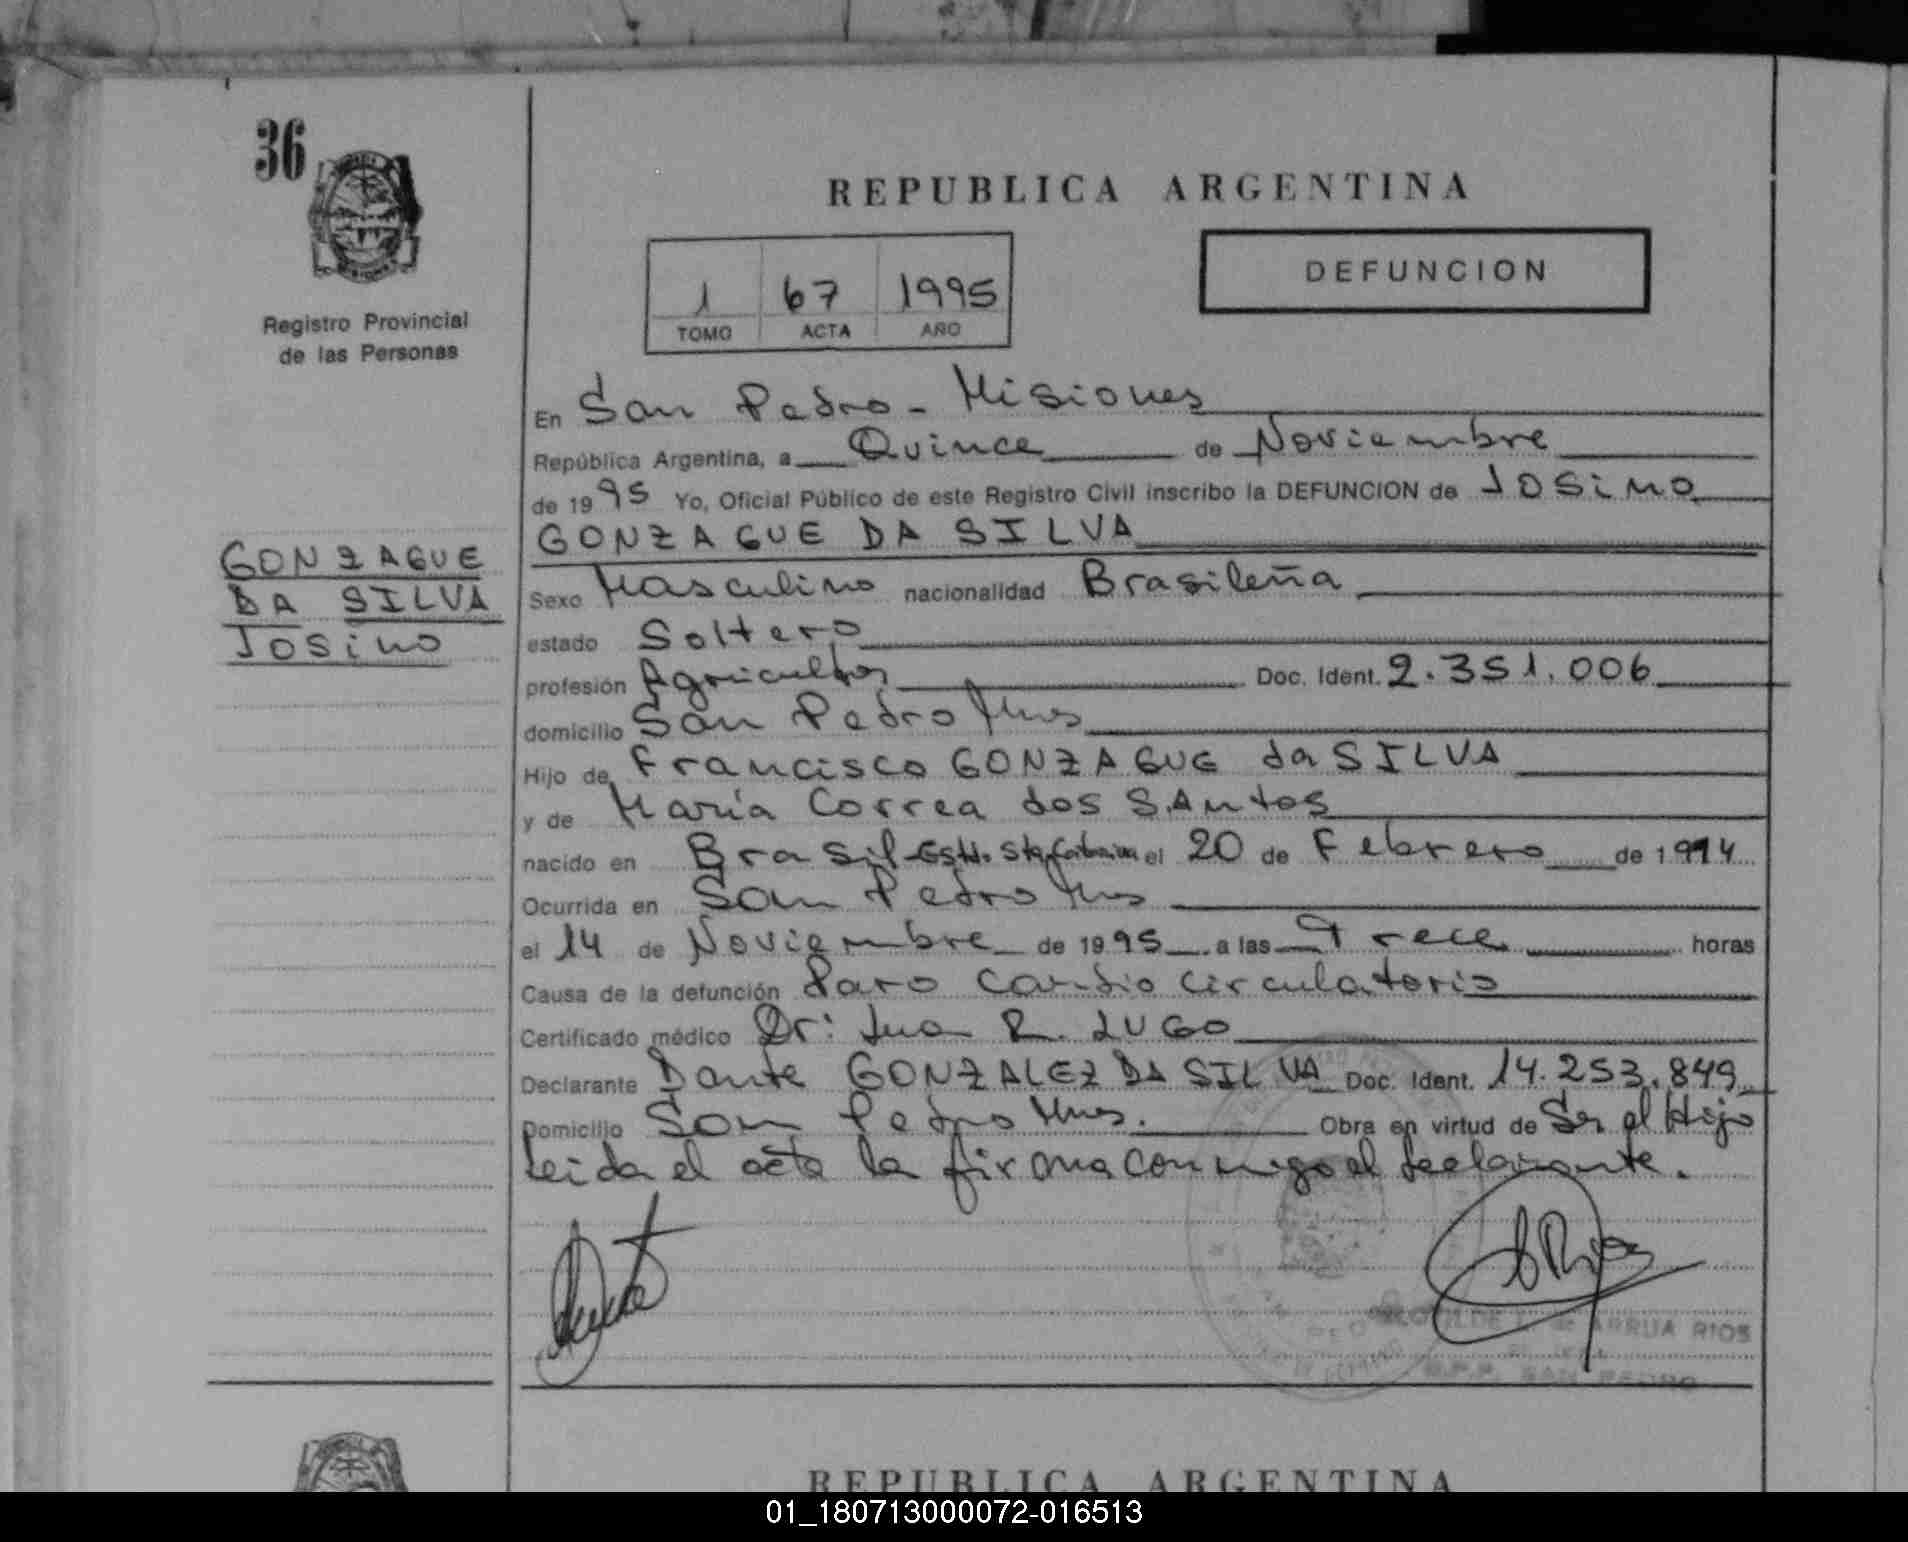 36
MISIONES
Registro Provincial
de las Personas
REPUBLICA ARGENTINA
DEFUNCION
1 67 1995
TOMO ACTA AÑO
En San Pedro - Misiones
República Argentina, a Quince de Noviembre
de 1995 Yo, Oficial Público de este Registro Civil inscribo la DEFUNCION de JOSiMO
GONZAGUE DA SILVA
GONZAGUE
DA SILVA
Josimo
Sexo Masculino nacionalidad Brasileña
estado Soltero
profesión Agricultor Doc. Ident. 2.351.006
domicilio San Pedro Mnes
Hijo de Francisco GONZAGUE da SILVA
y de María Correa dos SAntos
nacido en Brasil - Estd. Sta Catarina el 20 de Febrero de 1914
Ocurrida en San Pedro Mnes
el 14 de Noviembre de 1995 a las Trece horas
Causa de la defunción Paro Cardio Circulatorio
Certificado médico Dr: Juan R. LUGO
Declarante Dante GONZALEZ DA SILVA Doc. Ident. 14.253.849
Domicilio San Pedro Mnes. Obra en virtud de Ser el Hijo
Leida el acta la firma conmigo el declarante.
ARRUA RIOS
R.P.P. SAN PEDRO
REPUBLICA ARGENTINA
01_180713000072-016513